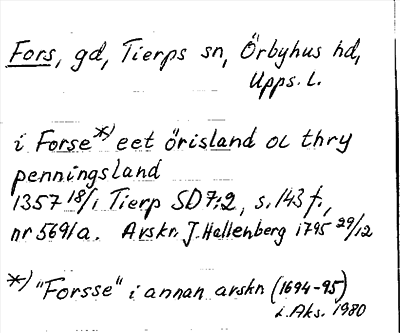 Fors, gd, Tierps sn, Örbyhus hd,
Upps. l.
i Forse *) eet örisland oc thry
penningsland
1357 18/1 Tierp SD 7:2, s. 143 f.,
nr 5691a. Avskr. J. Hallenberg 1795 29/12
*) "Forsse" i annan avskr (1694-95)
i. Aks. 1980